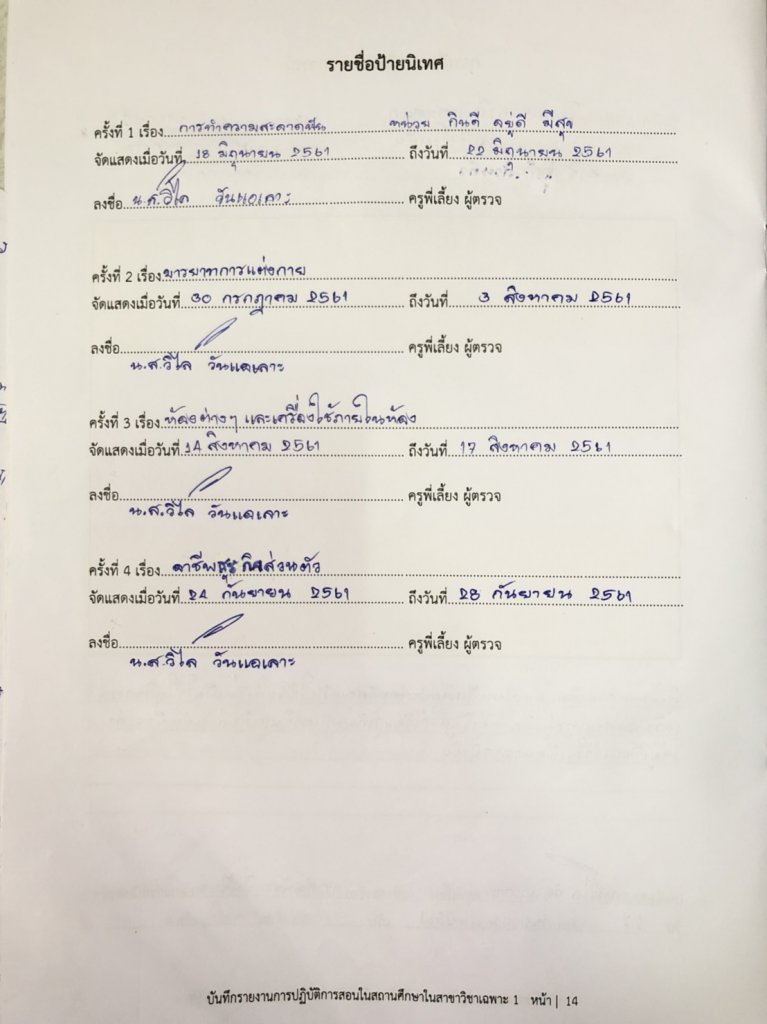 รายชื่อป้ายนิเทศ
ครั้งที่ 1 เรื่อง การทำความสะอาดฟัน หน่วย กินดี อยู่ดี มีสุข
จัดแสดงเมื่อวันที่ 18 มิถุนายน 2561 ถึงวันที่ 22 มิถุนายน 2561
ลงชื่อ น.ส.วิไล วันแอเลาะ ครูพี่เลี้ยง ผู้ตรวจ
ครั้งที่ 2 เรื่อง มารยาทการแต่งกาย
จัดแสดงเมื่อวันที่ 30 กรกฎาคม 2561 ถึงวันที่ 3 สิงหาคม 2561
ลงชื่อ ครูพี่เลี้ยง ผู้ตรวจ
น.ส.วิไล วันแอเลาะ
ครั้งที่ 3 เรื่อง ห้องต่างๆ และเครื่องใช้ภายในห้อง
จัดแสดงเมื่อวันที่ 14 สิงหาคม 2561 ถึงวันที่ 17 สิงหาคม 2561
ลงชื่อ ครูพี่เลี้ยง ผู้ตรวจ
น.ส.วิไล วันแอเลาะ
ครั้งที่ 4 เรื่อง อาชีพธุรกิจส่วนตัว
จัดแสดงเมื่อวันที่ 24 กันยายน 2561 ถึงวันที่ 28 กันยายน 2561
ลงชื่อ ครูพี่เลี้ยง ผู้ตรวจ
น.ส.วิไล วันแอเลาะ
บันทึกรายงานการปฏิบัติการสอนในสถานศึกษาในสาขาวิชาเฉพาะ 1 หน้า | 14